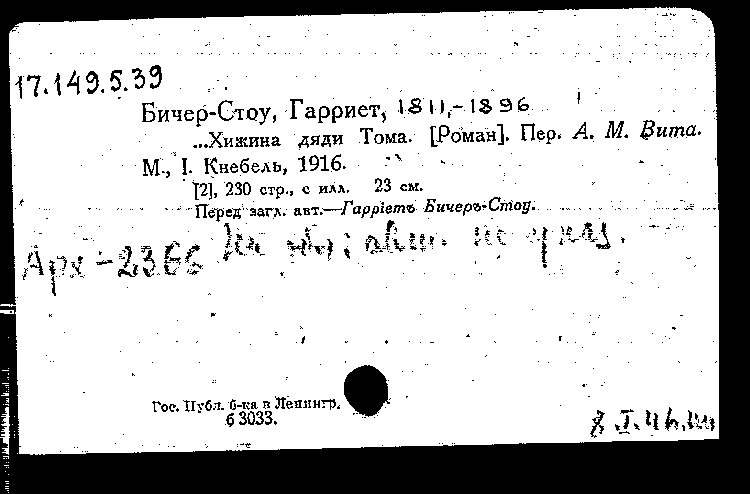 17.149.5.39
Бичер-Стоу, Гарриет, 1811,-1896
...Хижина дяди Тома. [Роман]. Пер. А. М. Вита.
М., I. Кнебель, 1916.
[2], 230 стр., с илл. 23 см.
Перед загл. авт.—Гарріетъ Бичеръ-Стоу.
Арх-2366 На обл: авт. не указ.
Гос. Публ. б-ка в Ленингр.
б 3033.
8.I.46.